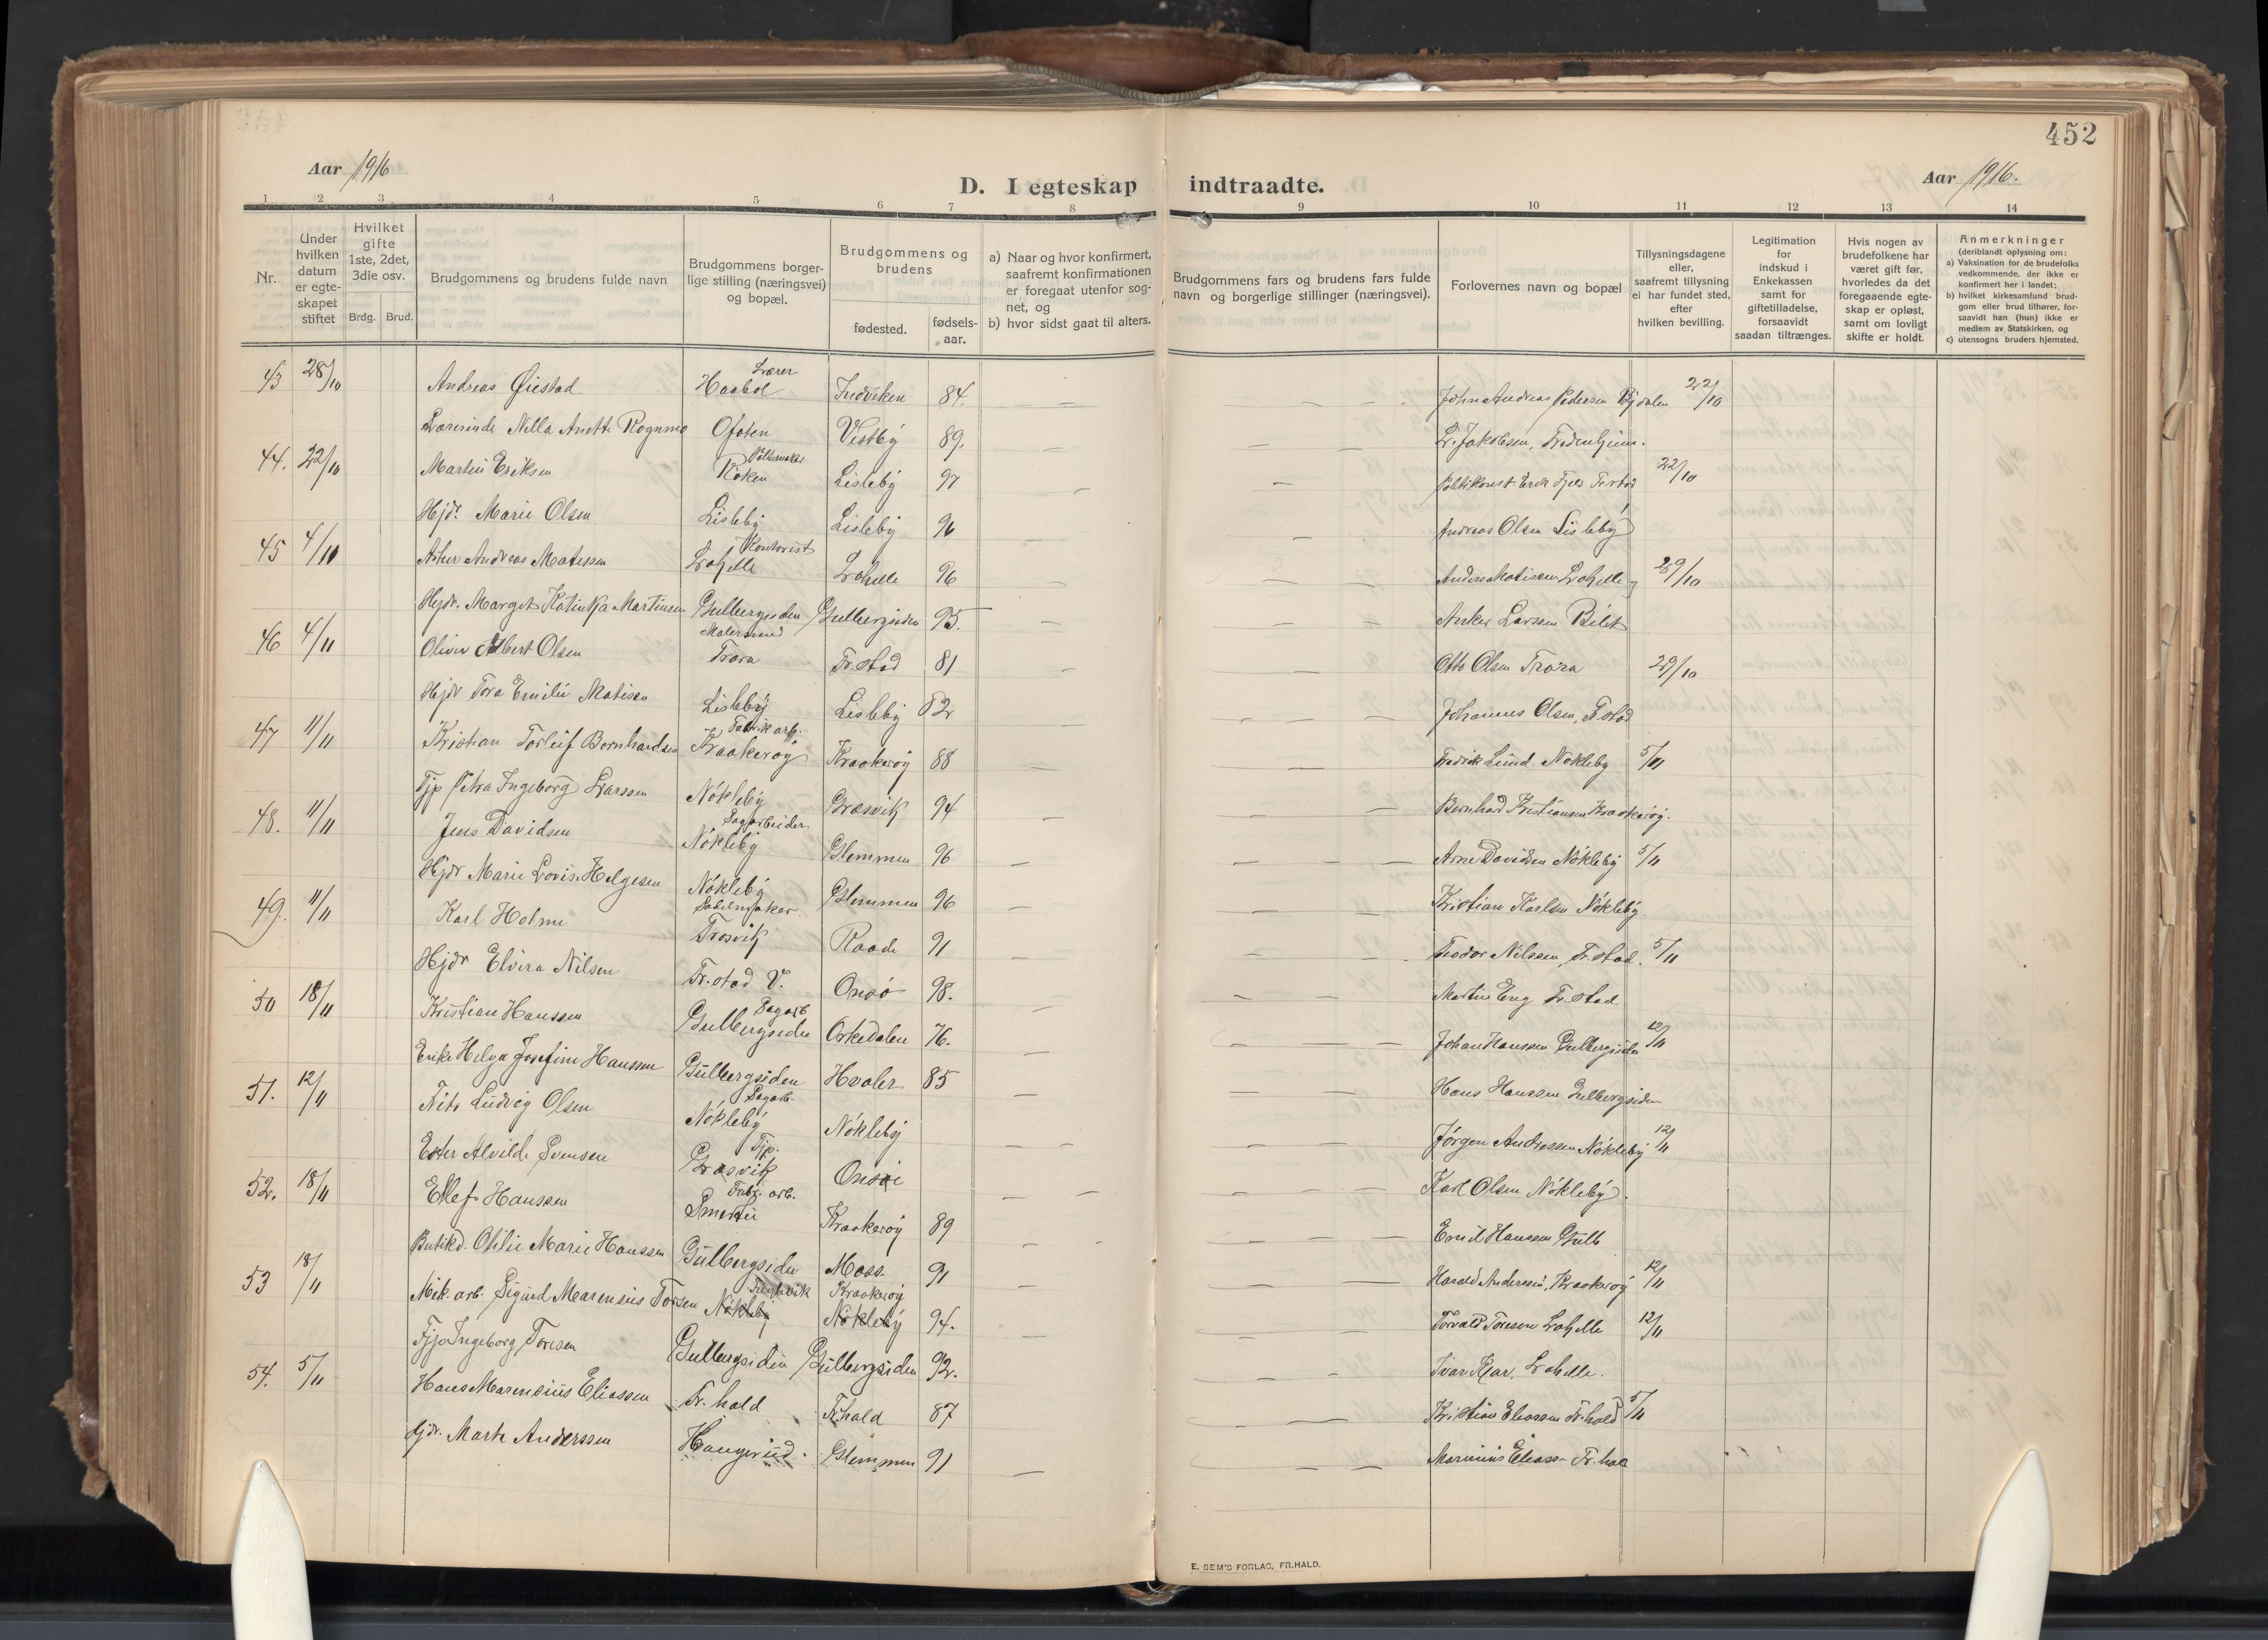 452
Aar 1916
D. I egteskap indtraadte.
Aar 1916.
1 2 3 4 5 6 7 8 9 10 11 12 13 14
Nr.
Under hvilken datum er egte-skapet stiftet
Hvilket gifte 1ste, 2det, 3die osv.
Brdg. Brud.
Brudgommens og brudens fulde navn
Brudgommens borger-lige stilling (næringsvei) og bopæl.
Brudgommens og brudens
fødested. fødsels-aar.
a) Naar og hvor konfirmert, saafremt konfirmationen er foregaat utenfor sog-net, og
b) hvor sidst gaat til alters.
Brudgommens fars og brudens fars fulde navn og borgerlige stillinger (næringsvei).
Forlovernes navn og bopæl
Tillysningsdagene eller, saafremt tillysning ei har fundet sted, efter hvilken bevilling.
Legitimation for indskud i Enkekassen samt for giftetilladelse, forsaavidt saadan tiltrænges.
Hvis nogen av brudefolkene har været gift før, hvorledes da det foregaaende egte-skap er opløst, samt om lovligt skifte er holdt.
Anmerkninger
(deriblandt oplysning om:
a) Vaksination for de brudefolks vedkommende, der ikke er konfirmert her i landet;
b) hvilket kirkesamfund brud-gom eller brud tilhører, for-saavidt han (hun) ikke er medlem av Statskirken, og
c) utensogns bruders hjemsted.
43 28/10 Andreas Øiestad Lærer Haabøl Indviken 84. 22/10
Lærerinde Nilla Anette Rognmo Ofoten Vestby 89. L. Jakobsen,
44. 22/10 Martin Eriksen Røken Lisleby 97 22/10
Hjdr. Marie Olsen Lisleby Lisleby 96 Andreas Olsen Lisleby
45 4/10 Artur Andreas Matissen Kontorist Lahelle Lahelle 96 Anders Matissen Lahelle 29/10
Hjdr. Margit Katinka Martinsen Gulbergsiden Gulbergsiden 95. Anker Larssen Bilet
46 4/11 Oliver Albert Olsen Malersvend Trara Fr.stad 81 Otto Olsen Trara 29/10
Hjdr Tora Emilie Matisen Lisleby Lisleby 82 Johannes Olsen, F.stad
47 11/11 Kristian Torleif Bernhardsen Fabrik arb. Kraakerøy Kraakerøy 88 Fredrik Lund. Nøkleby 5/11
Tjp Petra Ingeborg Larssen Nøkleby Græsvik 94 Bernhard Kristiansen Kraakerøy.
48. 11/11 Jens Davidsen Sagarbeider Nøkleby Glemmen 96 Arne Davidsen Nøkleby 5/11
Hjdr Marie Lovise Helgesen Nøkleby Glemmen 96 Kristian Karlsen Nøkleby
49. 11/11 Karl Holme Trosvik Raade 91 Teodor Nilssen, Fr.stad. 5/11
Hjdr Elvira Nilsen Fr.stad V. Onsø 98. Martin Eng Fr.stad
50 18/11 Kristian Hanssen Sagarb Gulbergsiden Orkedalen 76. Johan Hanssen Gulbergsiden 12/11
Enke Helga Josefine Hanssen Gulbergsiden Hvaler 85 Hans Hanssen Gulbergsiden
51. 12/11 Frits Ludvig Olsen Sagarb. Nøkleby Nøkleby Jørgen Andressen Nøkleby 12/11
Ester Alvilde Svensen Tjp. Græsvik Onsø Karl Olsen Nøkleby.
52. 18/11 Ellef Hanssen Fabr. arb. Kraakerøy 89 Emil Hanssen Gulb
Butikd. Otilie Marie Hanssen Gulbergsiden Moss 91 Harald Anderssen, Kraakerøy 12/11
53 18/11 Mek. arb. Sigurd Marensius Torsen Nøkleby Kraakerøy Nøkleby 94. Torvald Toresen Lahelle 12/11
Tjp Ingeborg Toresen Gulbergsiden Gulbergsiden 92. Ivar Kjær, Lahelle.
54. 5/11 Hans Marensius Eliassen Fr. hald Fr.hald 87 Kristian Eliassen Fr.hald 5/11
Hjdr. Marte Anderssen Haugerud. Glemmen 91 Marinius Eliass- Fr. hal
E. SEM'S FORLAG, FR.HALD.